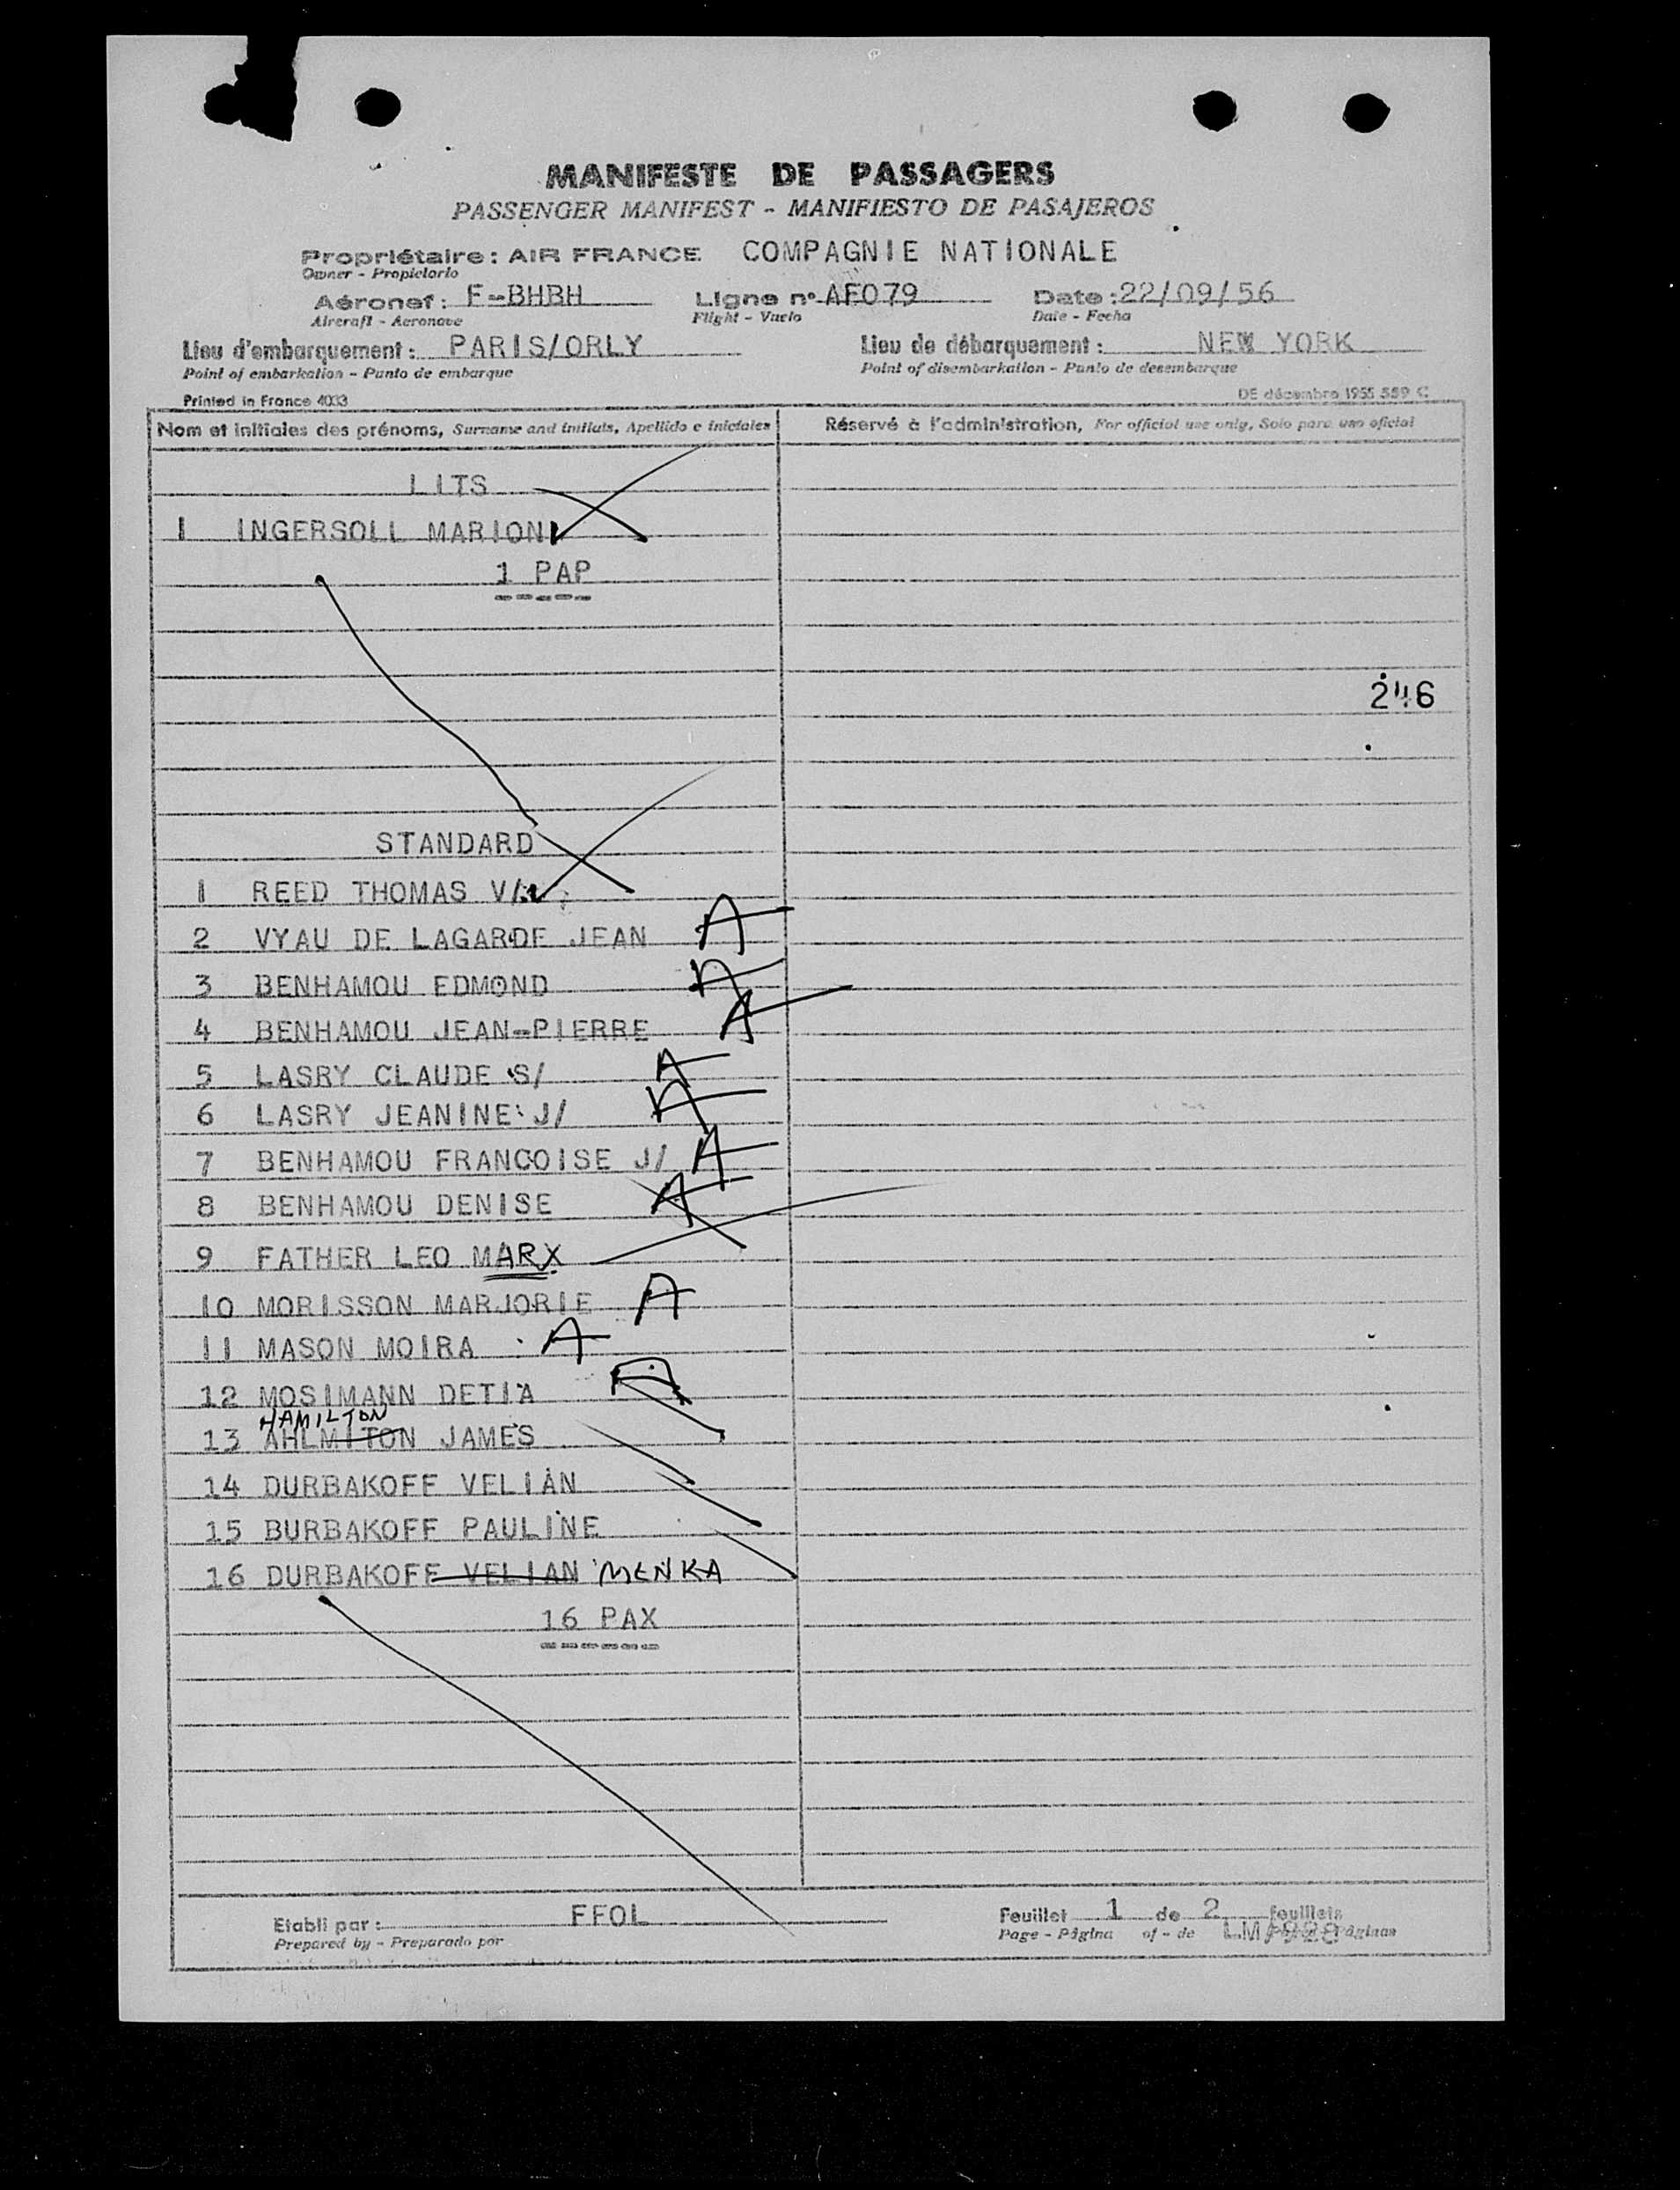 MANIFESTE DE PASSAGERS
PASSENGER MANIFEST - MANIFIESTO DE PASAJEROS
Propriétaire : AIR FRANCE COMPAGNIE NATIONALE
Owner - Propietario
Aéronef : F-BHBH Ligne n° AF079 Date : 22/09/56
Aircraft - Aeronave Flight - Vuelo Date - Fecha
Lieu d'embarquement : PARIS/ORLY Lieu de débarquement : NEW YORK
Point of embarkation - Punto de embarque Point of disembarkation - Punto de desembarque
Printed in France 4033 DE décembre 1955 559 C
Nom et initiales des prénoms, Surname and initials, Apellido e iniciales Réservé à l'administration, For official use only, Solo para uso oficial
LITS
1 INGERSOLL MARION
1 PAP
246
STANDARD
1 REED THOMAS V/
2 VYAU DE LAGARDE JEAN A
3 BENHAMOU EDMOND A
4 BENHAMOU JEAN-PIERRE A
5 LASRY CLAUDE S/ A
6 LASRY JEANINE J/ A
7 BENHAMOU FRANCOISE J/ A
8 BENHAMOU DENISE A
9 FATHER LEO MARX
10 MORISSON MARJORIE A
11 MASON MOIRA A
12 MOSIMANN DETIA A
HAMILTON
13 AHLMITON JAMES
14 DURBAKOFF VELIAN
15 BURBAKOFF PAULINE
16 DURBAKOFF VELIAN MENKA
16 PAX
Etabli par : FFOL Feuillet 1 de 2 feuillets
Prepared by - Preparado por Page - Página of - de Páginas